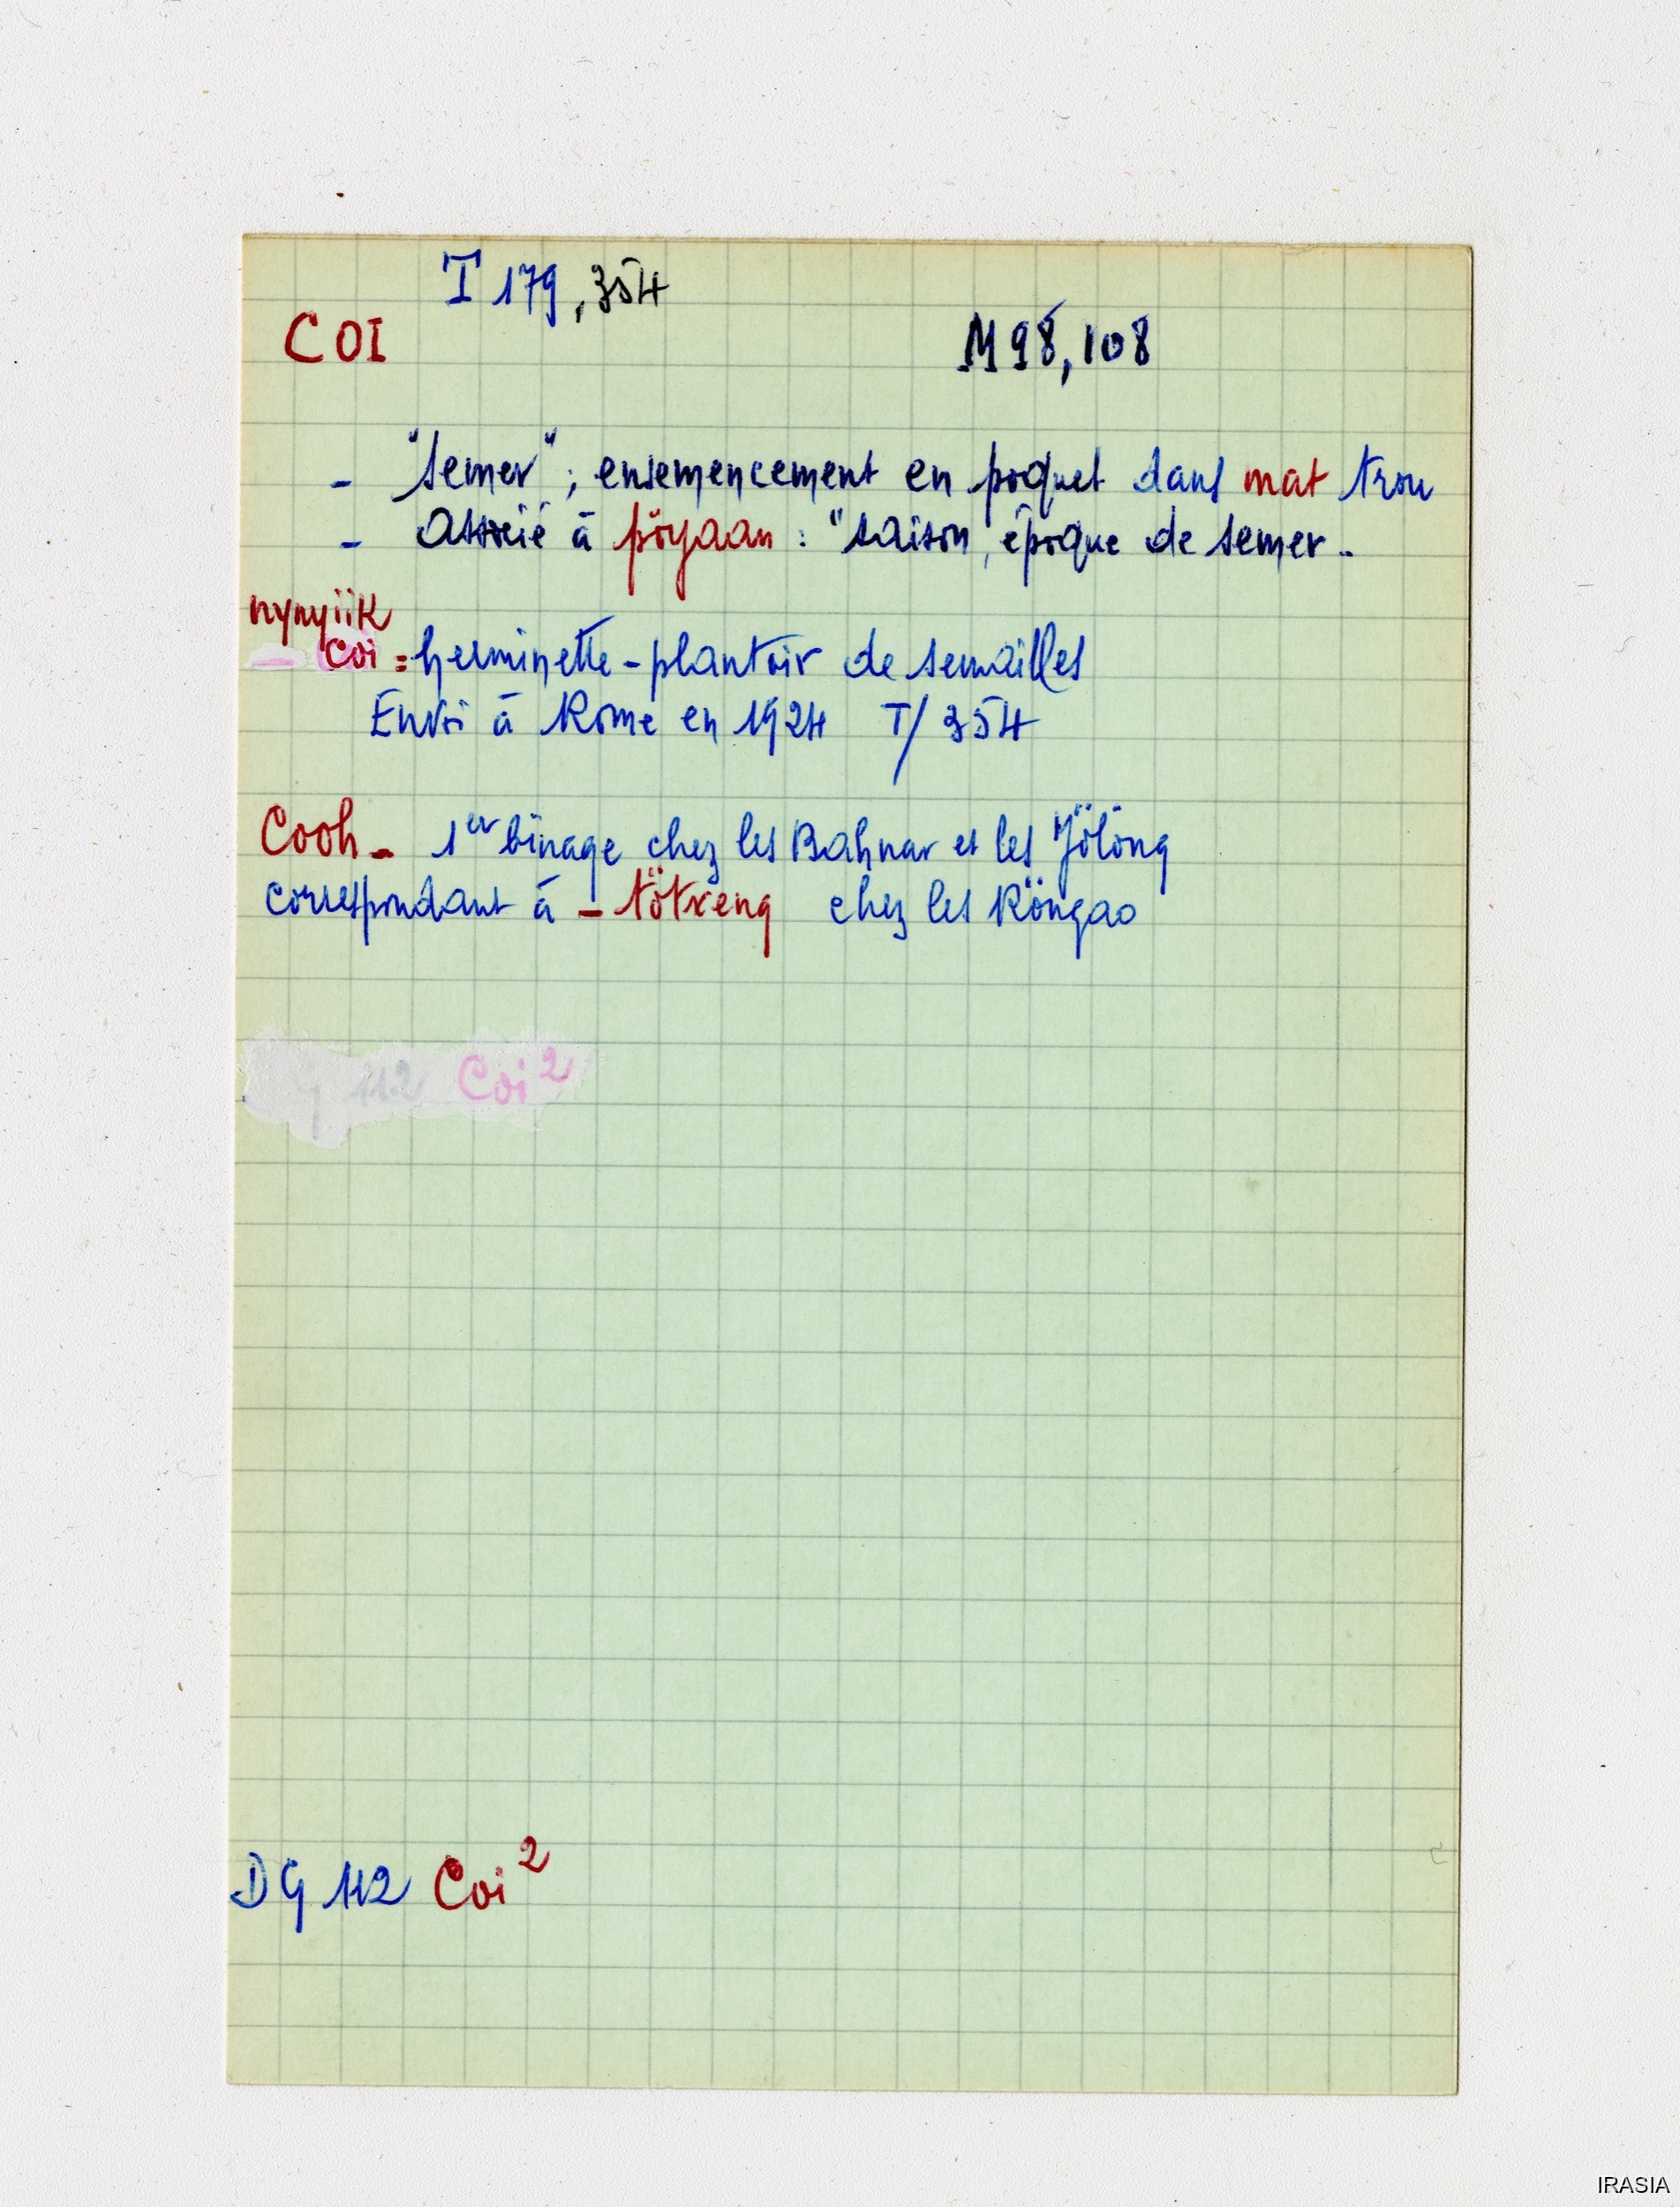 T 179, 354
COI
M 98, 108
- "semer" ; ensemencement en poquet dans mat trou
- Associé à pöyaan : "saison, époque de semer -
nynyiik
- coi = herminette - plantoir de semailles
Envoi à Rome en 1924 T/ 354
Cooh - 1er binage chez les Bahnar et les Jölöng
correspondant à - tötxeng chez les Röngao
112 Coi 2
DG 112 Coi 2
IRASIA